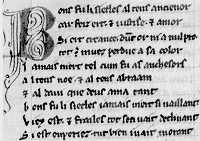 Bons fu li siecles al tens ancienor
car feiz ert & iustise & amor
Si ert creance dunt or ni a nul pro
tot est muez perdue a sa color
Ia mais niert tel cum fu as anchesors
Al tens noe & al tens abraam
& al dauit que deus ama tant
bons fu li siecles iamais niert si uaillant
Uielz est & frailes tot sen uait declinant
Si est enpeiriez tut bien uait morant